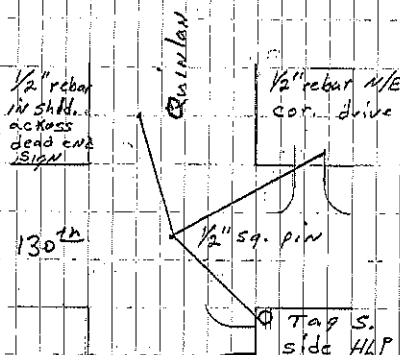 1/2" rebar
in shld.
across
dead end
sign
Quinlan
1/2" rebar N/E
cor. drive
130th
1/2" sq. pin
Tag S.
side HLP